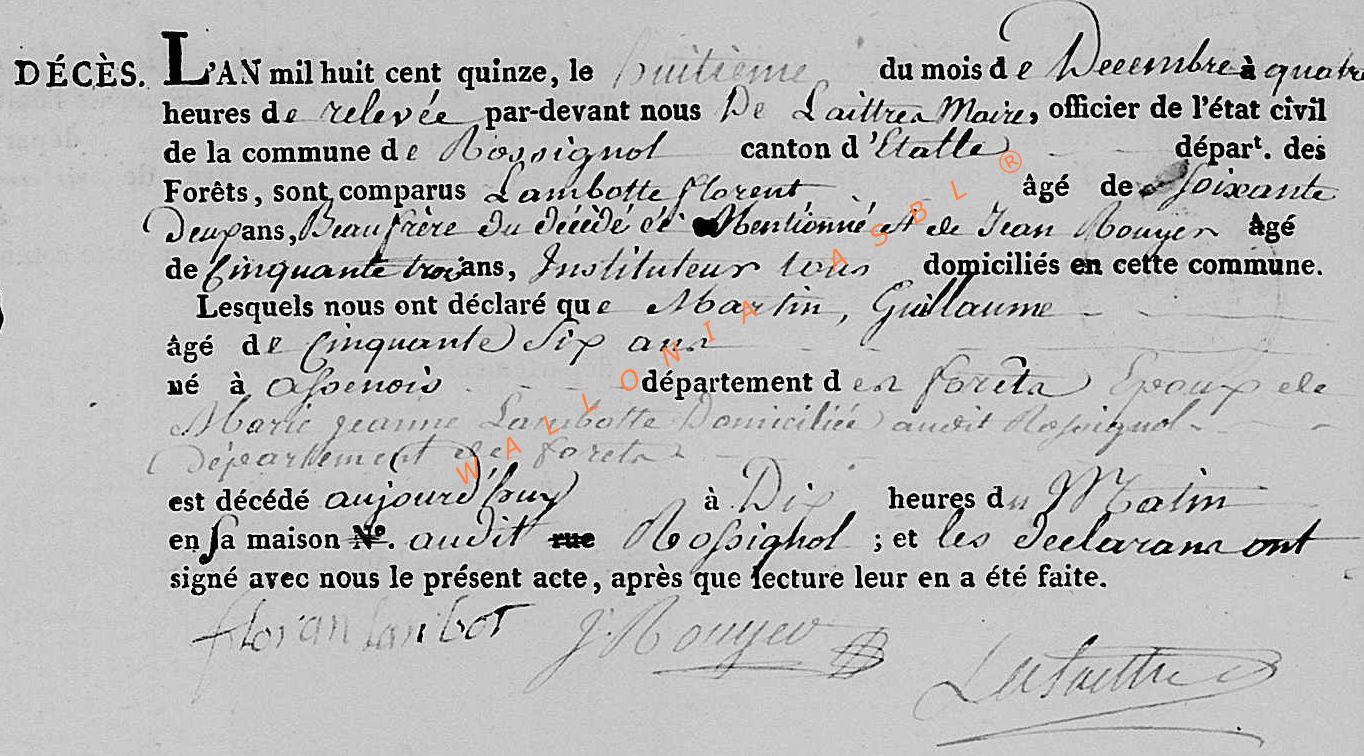 DÉCÈS. L'AN mil huit cent quinze, le huitième du mois de Decembre à quatre
heures de relevée par-devant nous De Laittres Maire, officier de l'état civil
de la commune de Rossignol canton d'Etalle départ. des
Forêts, sont comparus Lambotte florent âgé de soixante
Deux ans, Beaufrère du décédé cé Mentionné et de Jean Rouyer âgé
de Cinquante trois ans, Instituteur tous domiciliés en cette commune.
Lesquels nous ont déclaré que Martin, Guillaume
âgé de Cinquante Six ans
né à assenois département des forêts Epoux de
Marie jeanne Lambotte Domiciliée audit Rossignol
Département des forets
est décédé aujourd'huy à Dix heures du Matin
en sa maison N°. audit rue Rossignol ; et les Declarans ont
signé avec nous le présent acte, après que lecture leur en a été faite.
floran lambot J. Rouyer
WALLONIA ASBL ®